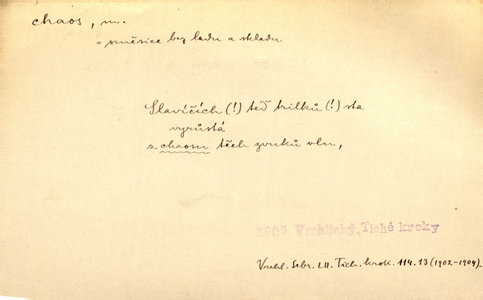 chaos, m.
„ směsice bez ladu a skladu
Slavičích (!) teď trilků (!) sta
vyrůstá
z chaosu těch zvuků vln,
Vrchlický. Tiché kroky
Vrchl. Sebr. LII. Tich. krok. 114. 13 (1902-1904)